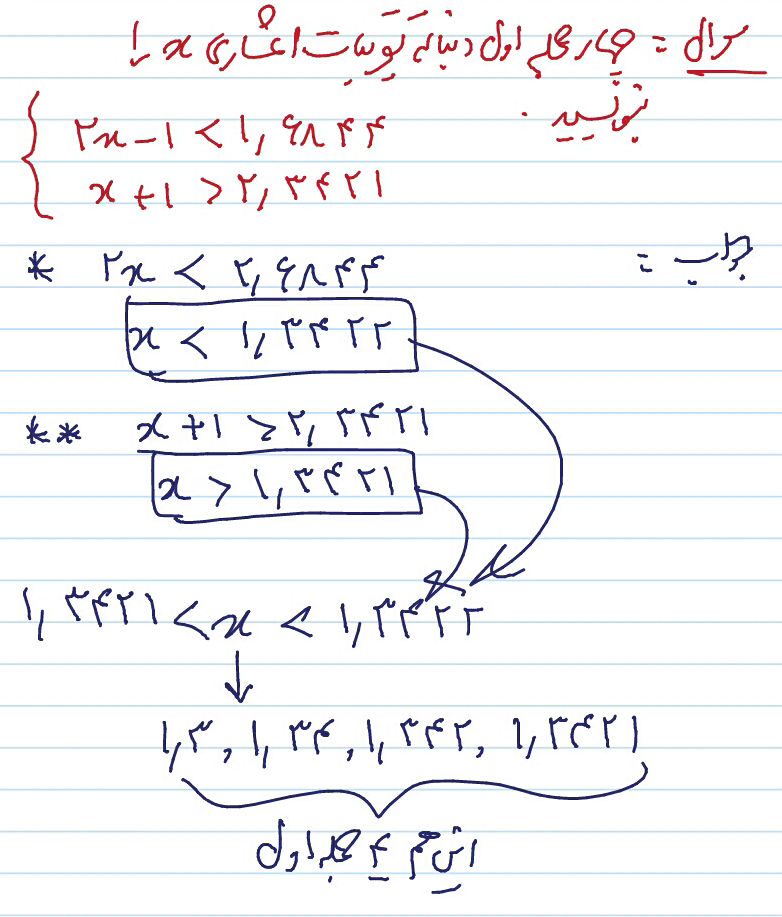 سوال = چهار جمله اول دنباله تقریبات اعشاری x را
بنویسید.
۲x − ۱ < ۱,۶۸۴۴
x + ۱ > ۲,۳۴۲۱
جواب =
* ۲x < ۲,۶۸۴۴
x < ۱,۳۴۲۲
** x + ۱ > ۲,۳۴۲۱
x > ۱,۳۴۲۱
۱,۳۴۲۱ < x < ۱,۳۴۲۲
۱,۳ , ۱,۳۴ , ۱,۳۴۲ , ۱,۳۴۲۱
این هم ۴ جمله اول